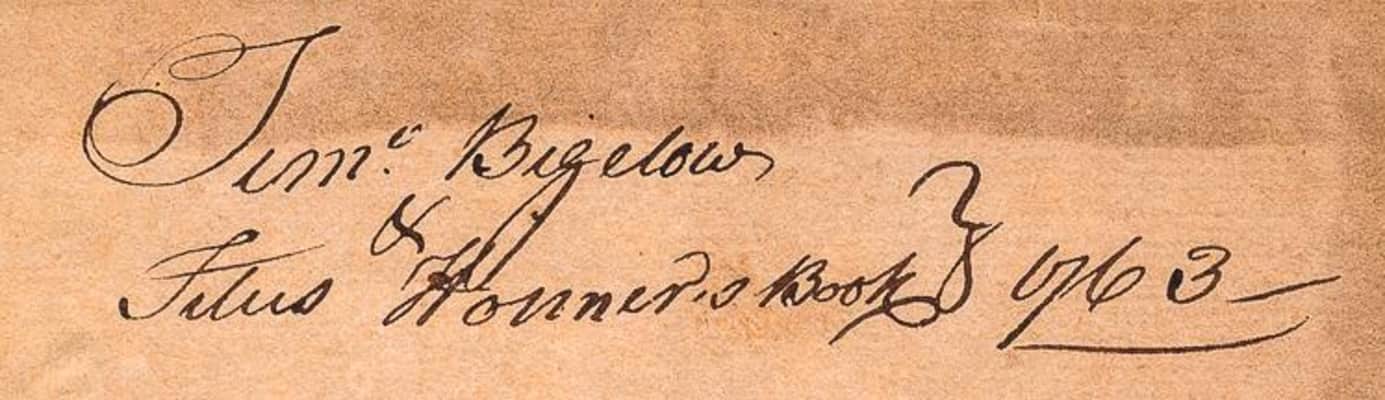 Timo. Bigelow
&
Titus Honner's Book } 1763